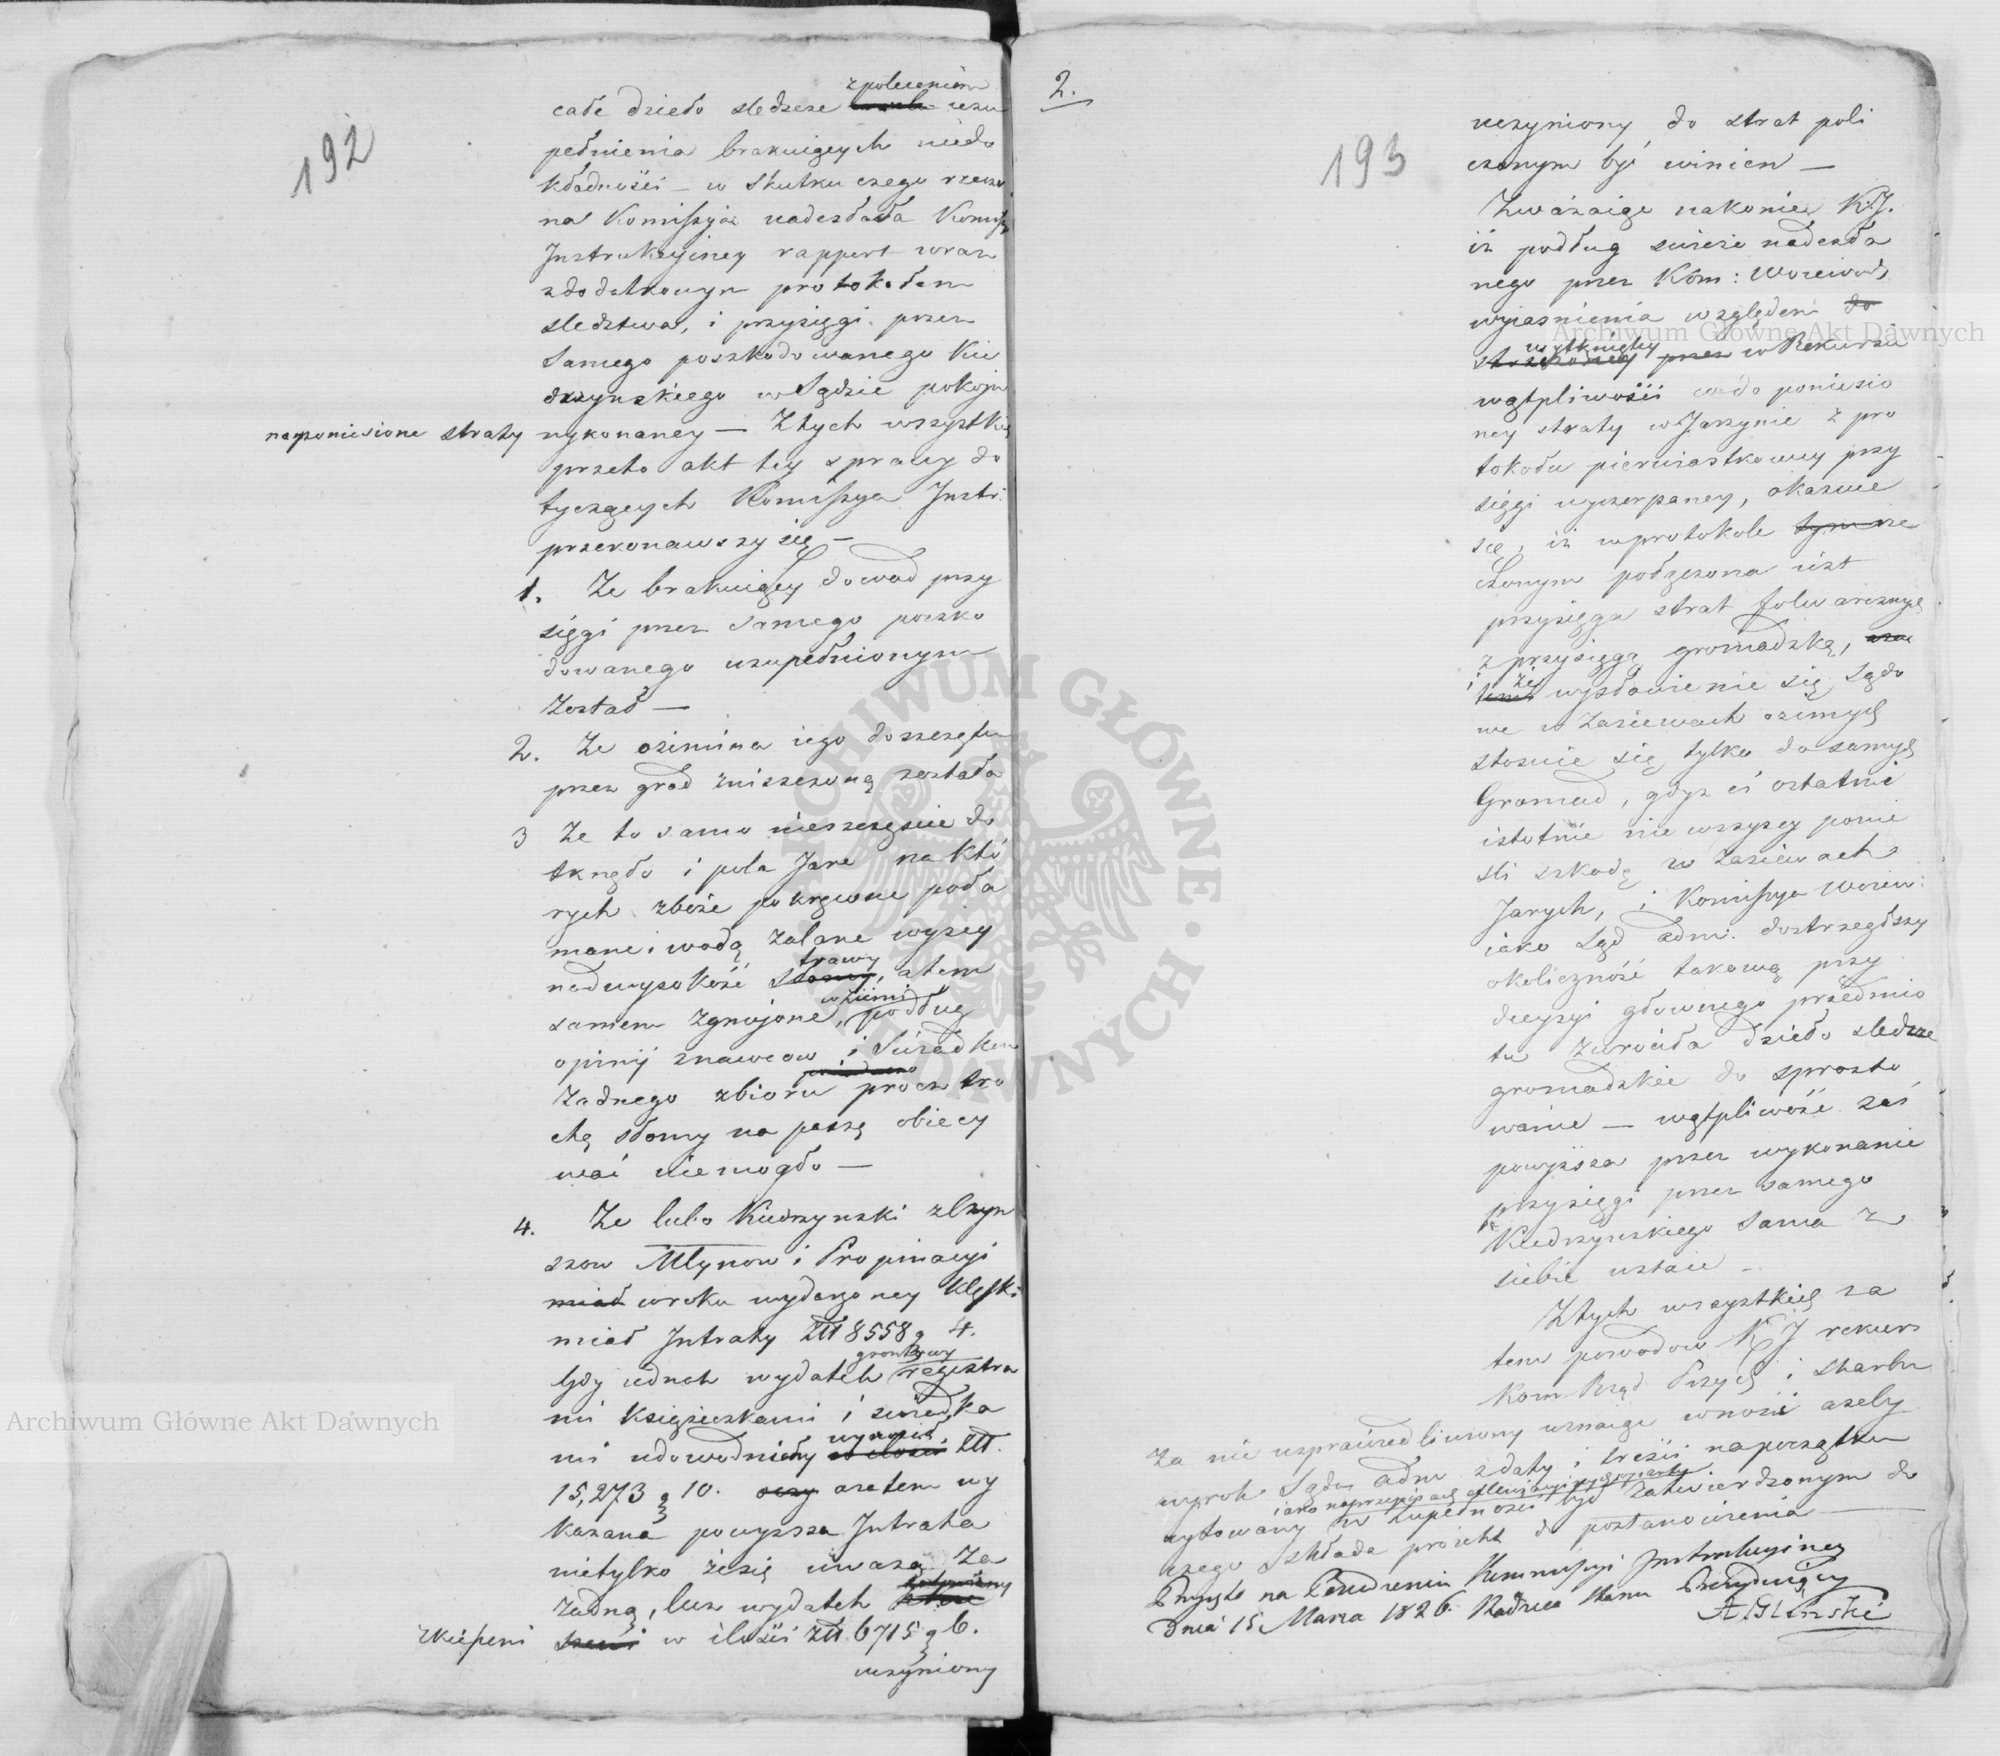 192
całe dzieło śledcze z poleceniem uzu
pełnienia brakuiących niedo
kładności – w skutku czego rzeczo
na Kommissyia nadesłała Kommissyi
Instrukcyiney rapport wraz
z dodatkowym protokołem
śledztwa, i przysięgi przez
samego poszkodowanego Kie
drzynskiego w Sądzie pokoju
na poniesione straty wykonaney – Z tych wszystkich
przeto akt tey sprawy do
tyczących Kommissya Instr:
przekonawszy się –
1. Że brakuiący dowód przy
sięgi przez samego poszko
dowanego uzupełnionym
został –
2. Że ozimina iego do szczętu
przez grad zniszczoną została
3 Że to samo nieszczęście do
tknęło i pola Jare na któ
rych zboże pokrzewne poła
mane i wodą zalane wyżey
nad wysokość trawy, a tem
samem zgniione w ziemi, podług
opinij znawców i świadków
żadnego zbioru prócz tro
chę słomy na paszę obiecy
wać nie mogło –
4. Że lubo Kiedrzynski z Czyn
szów Młynów i Propinacyi
miał w roku wydarzoney klęski
miał Intraty Złł 8558 g 4.
Gdy iednak wydatek gruntowy registra
mi książeczkami i świadka
mi udowodniony wynosił Złł.
15,273 g 10. a zatem wy
kazana powyższa Intrata
nietylko że się uważa za
żadną, lecz wydatek
z kieszeni w ilości Złł. 6715 g 6.
uczyniony
2.
193
uczyniony do strat poli
czonym być winien –
Zważaiąc nakoniec K.J.
iż podług ściśle nadesła
nego przez Kom: Woiewodz
wyiaśnienia względem do
wytkniętey przez w Rekursie
wątpliwości co do poniesio
ney straty w Jarzynie z pro
tokołu pierwiastkowey przy
sięgi wyczerpaney, okazuie
się, iż w protokole tymże
rzeczonym połączona iest
przysięga strat folwarcznych
z przysięgą gromadzką,
i że wysłowienie się Sądo
we w zasiewach ozimych
stosuie się tylko do samych
Gromad, gdyż ci ostatni
istotnie nie wszyscy ponie
śli szkodę w zasiewach
Jarych, i Kommissya Woiew:
iako Sąd adm: dostrzegłszy
okoliczność takową przy
decyzyi głównego przedmio
tu zwróciła dzieło śledcze
gromadzkie do sprosto
wania – wątpliwość zaś
powyższa przez wykonanie
przysięgi przez samego
Kiedrzynskiego sama z
siebie ustaie –
Z tych wszystkich za
tem powodów K J rekurs
Kom Rząd Przych i Skarbu
za nie usprawiedliwiony uznaiąc wnosi ażeby
wyrok Sądu adm z daty i treści na początku
cytowany w zupełności był zatwierdzonym do
czego składa proiekt do postanowienia –
Przyięto na Posiedzeniu Kommissyi Instrukcyiney
Dnia 15 Marca 1826. Radzca Stanu Prezyduiący
A Gliński
Archiwum Główne Akt Dawnych
Archiwum Główne Akt Dawnych
ARCHIWUM GŁÓWNE AKT DAWNYCH